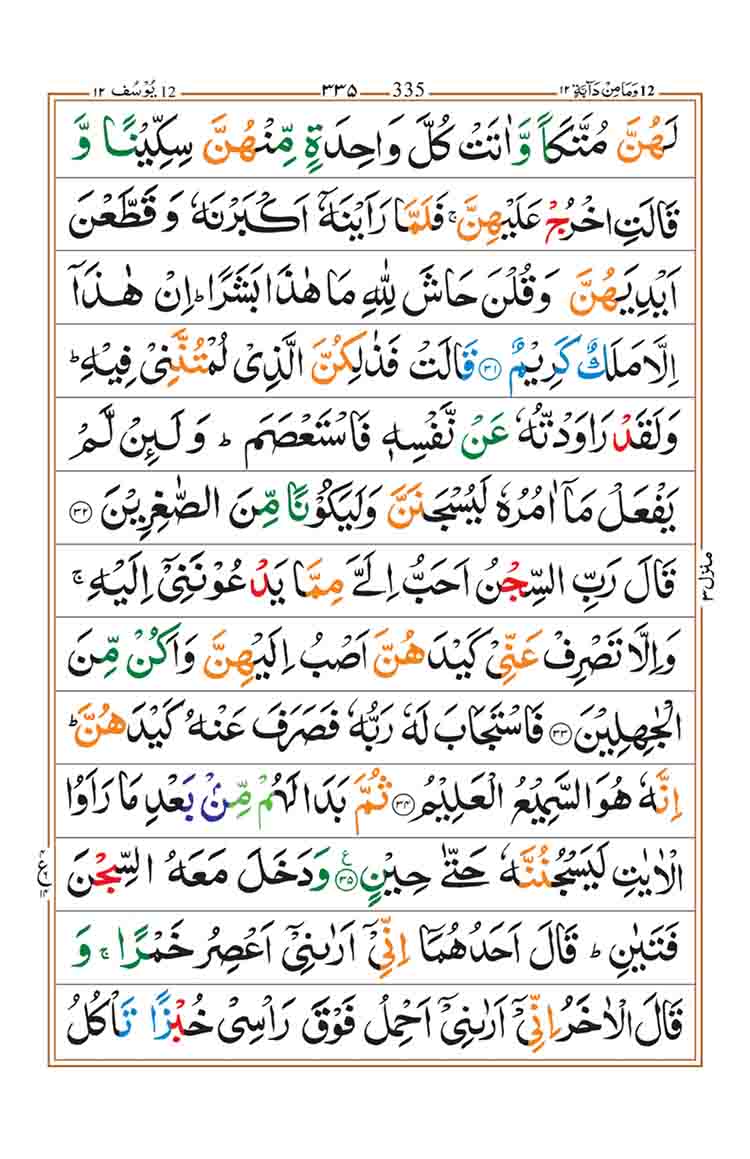 12 وَمَا مِنْ دَآبَّةٍ ١٢ 335 ٣٣٥ 12 يُوْسُف ١٢
لَهُنَّ مُتَّكَاً وَّاٰتَتْ كُلَّ وَاحِدَةٍ مِّنْهُنَّ سِكِّيْنًا وَّ
قَالَتِ اخْرُجْ عَلَيْهِنَّ ۚ فَلَمَّا رَاَيْنَهٗۤ اَكْبَرْنَهٗ وَ قَطَّعْنَ
اَيْدِيَهُنَّ وَقُلْنَ حَاشَ لِلّٰهِ مَا هٰذَا بَشَرًا ؕ اِنْ هٰذَاۤ
اِلَّا مَلَكٌ كَرِيْمٌ ﴿٣١﴾ قَالَتْ فَذٰلِكُنَّ الَّذِىْ لُمْتُنَّنِىْ فِيْهِ ؕ
وَلَقَدْ رَاوَدْتُّهٗ عَنْ نَّفْسِهٖ فَاسْتَعْصَمَ ؕ وَلَئِنْ لَّمْ
يَفْعَلْ مَاۤ اٰمُرُهٗ لَيُسْجَنَنَّ وَلَيَكُوْنًا مِّنَ الصّٰغِرِيْنَ ﴿٣٢﴾
قَالَ رَبِّ السِّجْنُ اَحَبُّ اِلَىَّ مِمَّا يَدْعُوْنَنِىْۤ اِلَيْهِ ۚ
وَاِلَّا تَصْرِفْ عَنِّىْ كَيْدَهُنَّ اَصْبُ اِلَيْهِنَّ وَاَكُنْ مِّنَ
الْجٰهِلِيْنَ ﴿٣٣﴾ فَاسْتَجَابَ لَهٗ رَبُّهٗ فَصَرَفَ عَنْهُ كَيْدَهُنَّ ؕ
اِنَّهٗ هُوَ السَّمِيْعُ الْعَلِيْمُ ﴿٣٤﴾ ثُمَّ بَدَا لَهُمْ مِّنْۢ بَعْدِ مَا رَاَوُا
الْاٰيٰتِ لَيَسْجُنُنَّهٗ حَتّٰى حِيْنٍ ﴿٣٥﴾ ع وَدَخَلَ مَعَهُ السِّجْنَ
فَتَيٰنِ ؕ قَالَ اَحَدُهُمَاۤ اِنِّىْۤ اَرٰٮنِىْۤ اَعْصِرُ خَمْرًا ۚ وَ
قَالَ الْاٰخَرُ اِنِّىْۤ اَرٰٮنِىْۤ اَحْمِلُ فَوْقَ رَاْسِىْ خُبْزًا تَاْكُلُ
منزل ٣
ع